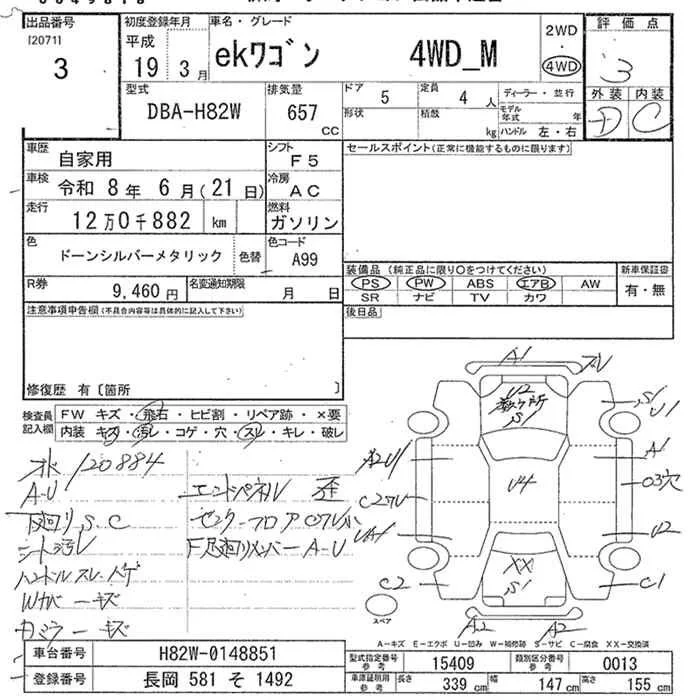 出品番号
[2071]
3
初度登録年月
平成
19 3月
車名・グレード
ekワゴン 4WD_M
2WD
・
4WD
評価点
3
外装 内装
D C
型式
DBA-H82W
排気量
657
CC
ドア
5
定員
4 人
形状
積載
kg
ディーラー・並行
モデル年式 年
ハンドル 左・右
車歴
自家用
シフト
F5
車検
令和 8年 6月(21日)
冷房
AC
走行
12万0千882 km
燃料
ガソリン
色
ドーンシルバーメタリック
色替
色コード
A99
R券
9,460 円
名変通知期限
月 日
セールスポイント(正常に機能するものに限ります)
装備品 (純正品に限り〇をつけてください)
PS PW ABS エアB AW
SR ナビ TV カワ
新車保証書
有・無
後日品
注意事項申告欄(不具合内容等は具体的に記入して下さい)
修復歴 有〔箇所 〕
検査員
記入欄
FW キズ・飛石・ヒビ割・リペア跡・×要
内装 キズ・汚レ・コゲ・穴・スレ・キレ・破レ
水 120884
A-U
下廻りS.C
シート汚レ
ハンドルスレ・ハゲ
Wカバーキズ
Rミラーキズ
エンドパネル 歪
センターフロア
F足廻りメンバーA-U
A1
U2
S1
S1
U1
A2U1
A1
O3穴
U4
U2
C2
XX
S1
C1
A2
A2
スペア
A-キズ E-エクボ U-凹み W-補修跡 S-サビ C-腐食 XX-交換済
車台番号
H82W-0148851
登録番号
長岡 581 そ 1492
型式指定番号
参考
15409
類別区分番号
参考
0013
車庫証明用
参考
長さ
339 cm
幅
147 cm
高さ
155 cm